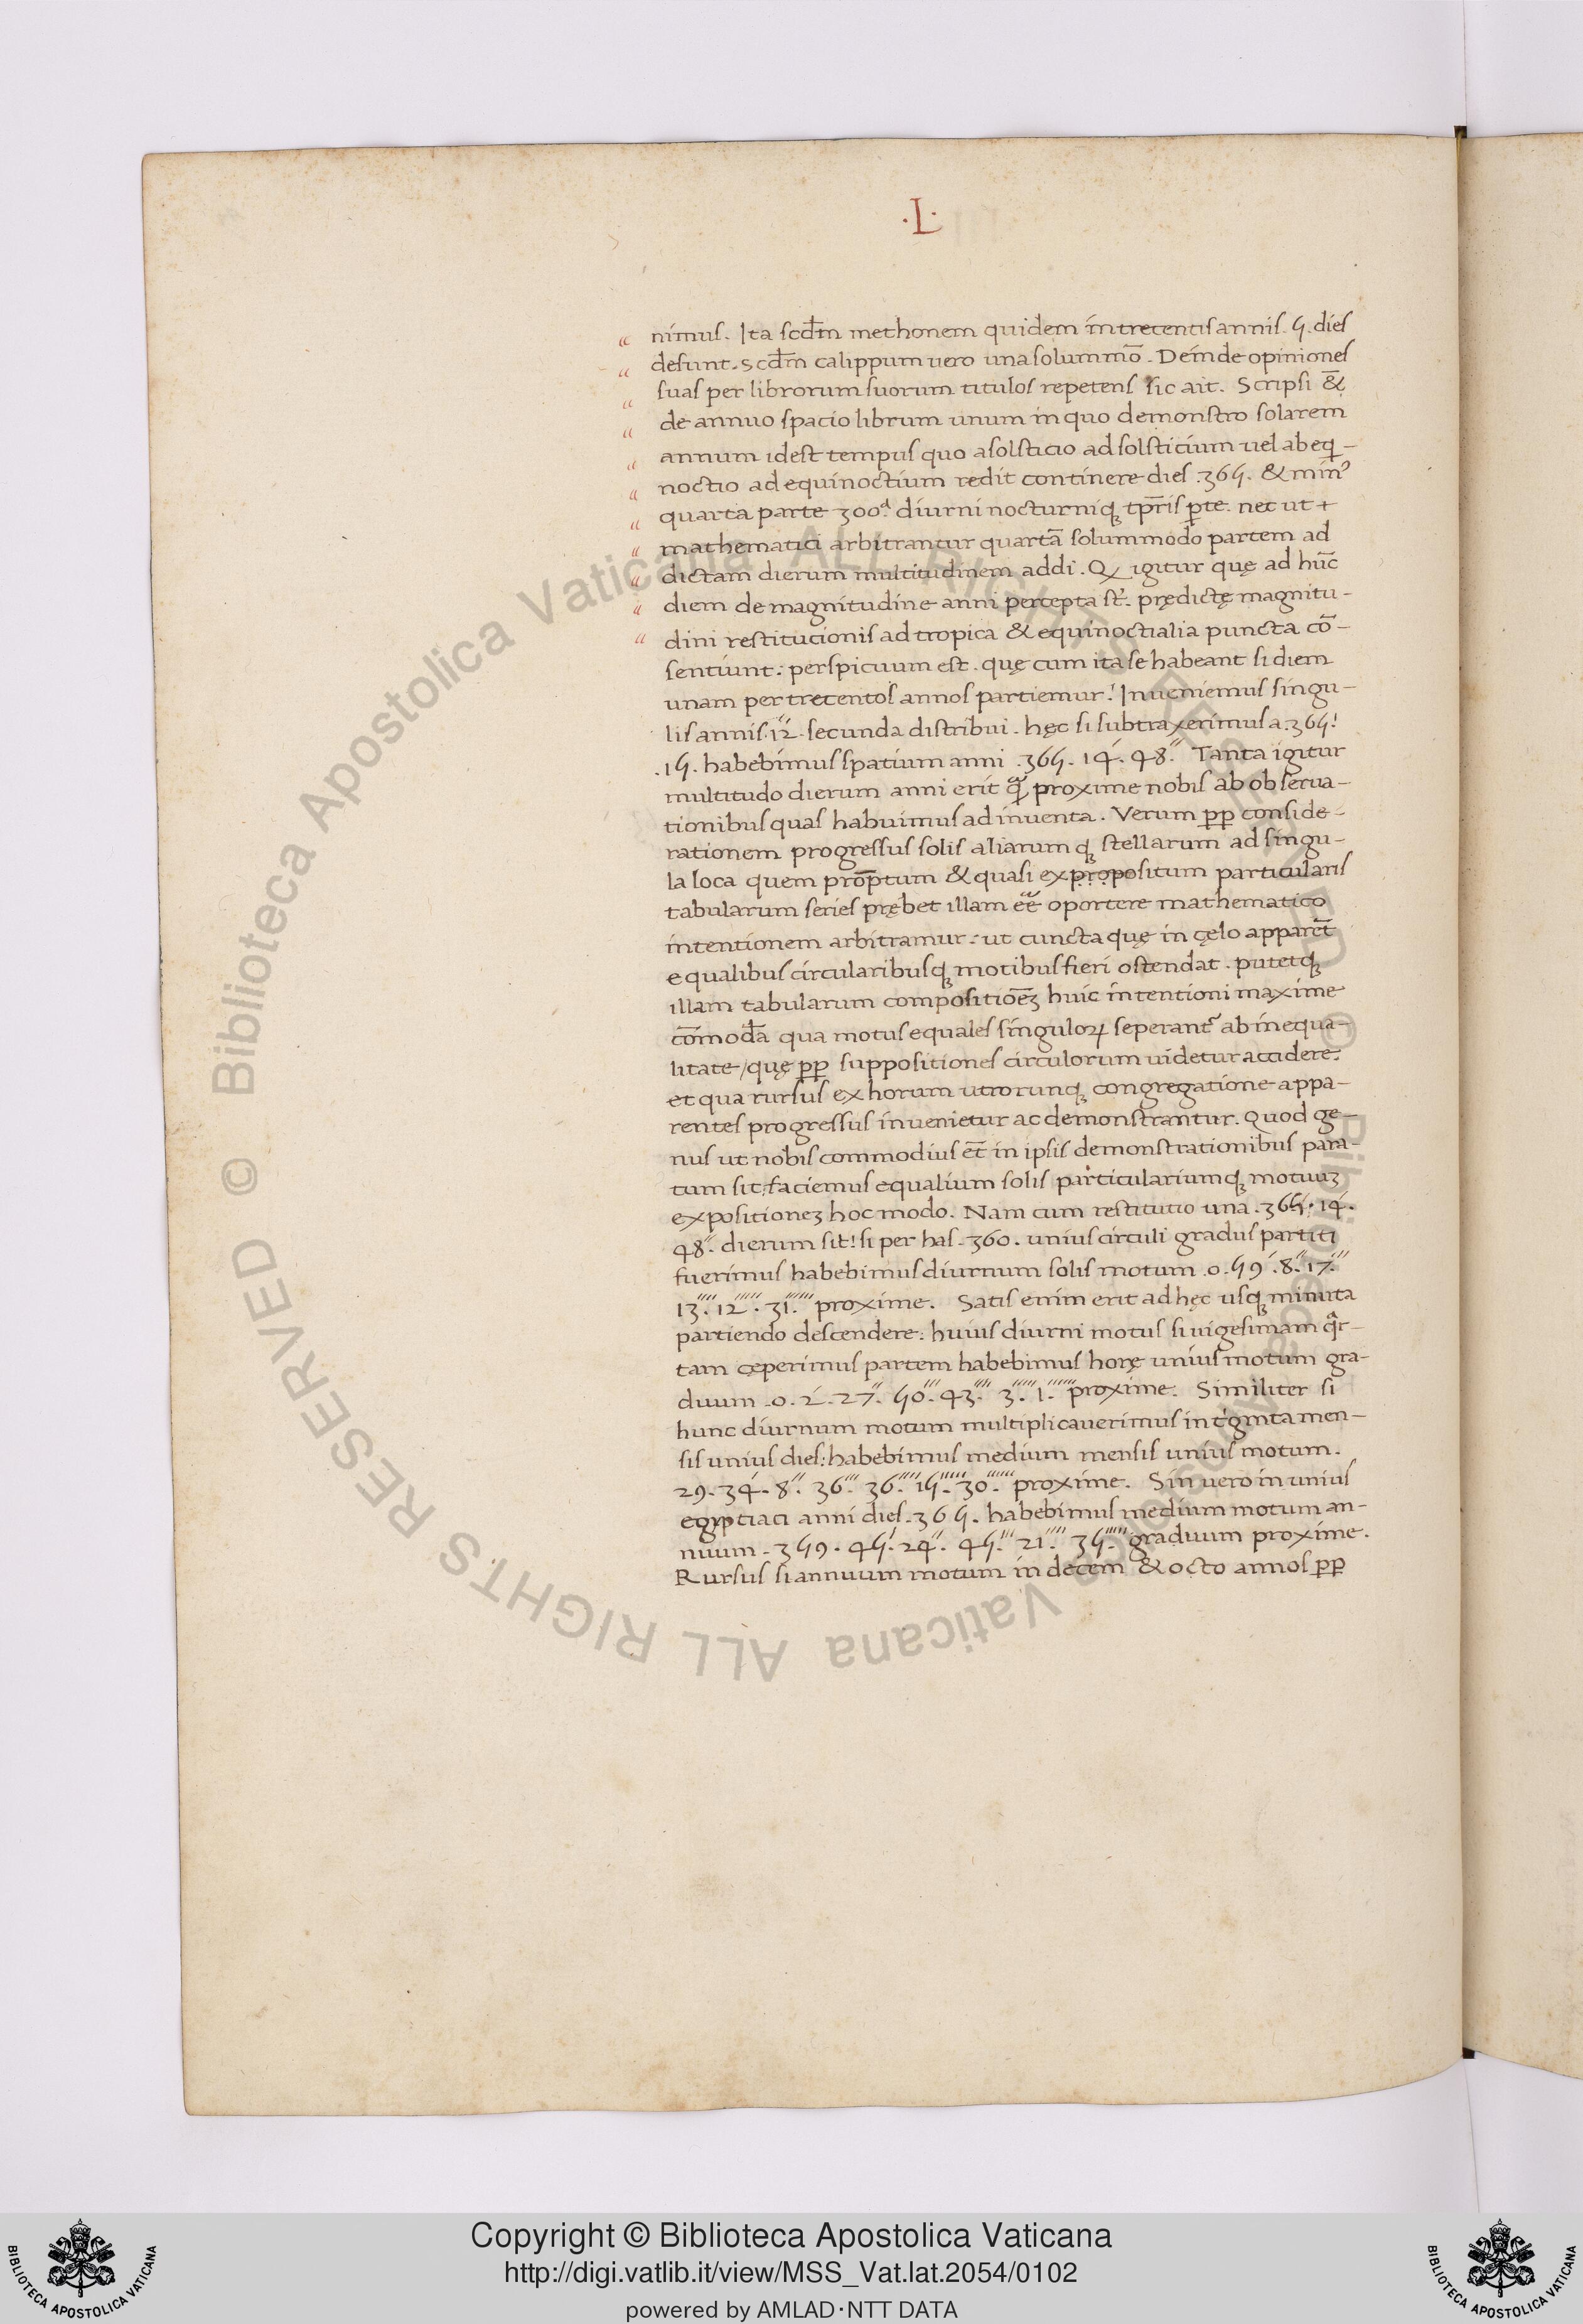 .L.
nimus. Ita scd̄m methonem quidem in trecentis annis .5. dies
desunt. scd̄m calippum uero una solummō. Deinde opiniones
suas per librorum suorum titulos repetens sic ait. Scripsi &̄
de annuo spacio librum unum in quo demonstro solarem
annum idest tempus quo a solsticio ad solsticium uel ab eq̄-
noctio ad equinoctium redit continere dies .365. & min⁹
quarta parte 300ᵃ. diurni nocturniqꝫ tp̄ris ꝑte. nec ut +
mathematici arbitrantur quartā solummodo partem ad
dictam dierum multitudinem addi. Qꝫ igitur quę ad hūc
diem de magnitudine anni percepta st̄. prędictę magnitu-
dini restitucionis ad tropica & equinoctialia puncta cō-
sentiunt: perspicuum est. quę cum ita se habeant si diem
unam per trecentos annos partiemur! Inueniemus singu-
lis annis .12″. secunda distribui. hęc si subtraxerimus a .365!
.15. habebimus spatium anni .365. 14′. 48″. Tanta igitur
multitudo dierum anni erit qᷓ proxime nobis ab obserua-
tionibus quas habuimus ad inuenta. Verum ꝑꝑ conside-
rationem progressus solis aliarumqꝫ stellarum ad singu-
la loca quem prōptum & quasi expropositum particularis
tabularum series prębet illam ēē oportere mathematico
intentionem arbitramur: ut cuncta quę in cęlo apparēt
equalibus circularibusqꝫ motibus fieri ostendat. putetqꝫ
illam tabularum compositiōeꝫ huic intentioni maxime
cōmodā qua motus equales singuloꝝ seperant᷑ ab inequa-
litate / quę ꝑꝑ suppositiones circulorum uidetur accidere.
et qua rursus ex horum utrorunqꝫ congregatione appa-
rentes progressus inuenietur ac demonstrantur. Quod ge-
nus ut nobis commodius et̄ in ipsis demonstrationibus para-
tum sit: faciemus equalium solis particulariumqꝫ motuuꝫ
expositioneꝫ hoc modo. Nam cum restitutio una .365. 14′.
48″. dierum sit! si per has .360. unius circuli gradus partiti
fuerimus habebimus diurnum solis motum .0. 59′. 8″. 17‴.
13⁗. 12‴″. 31‴‴. proxime. Satis enim erit ad hęc usqꝫ minuta
partiendo descendere: huius diurni motus si uigesimam qᷓr-
tam cęperimus partem habebimus horę unius motum gra-
duum .0. 2′. 27″. 50‴. 43⁗. 3‴″. 1‴‴. proxime. Similiter si
hunc diurnum motum multiplicauerimus in t'ginta men-
sis unius dies: habebimus medium mensis unius motum.
29. 34′. 8″. 36‴. 36⁗. 15‴″. 30‴‴. proxime. Sin uero in unius
egyptiaci anni dies .365. habebimus medium motum an-
nuum. 359. 45′. 24″. 45‴. 21⁗. 35‴″. graduum proxime.
Rursus si annuum motum in decem & octo annos ꝑꝑ
Copyright © Biblioteca Apostolica Vaticana
http://digi.vatlib.it/view/MSS_Vat.lat.2054/0102
powered by AMLAD·NTT DATA
BIBLIOTECA APOSTOLICA VATICANA
BIBLIOTECA APOSTOLICA VATICANA
© Biblioteca Apostolica Vaticana ALL RIGHTS RESERVED
© Biblioteca Apostolica Vaticana ALL RIGHTS RESERVED